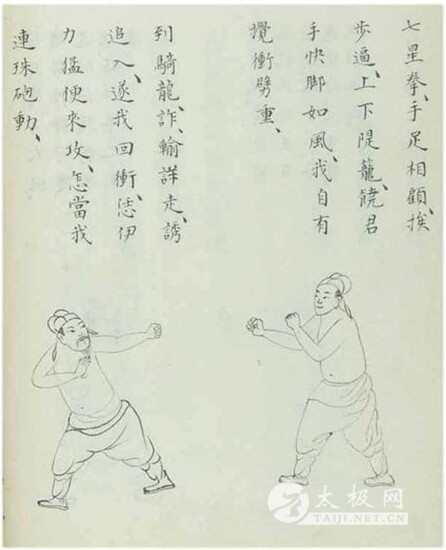 七星拳、手足相顧、挨
歩逼、上下隄籠、饒君
手快脚如風、我自有
攪衝劈重、
到騎龍、詐輸詳走、誘
追入、遂我回衝、恁伊
力猛便來攻、怎當我
連珠砲動、
太极网
TAIJI.NET.CN